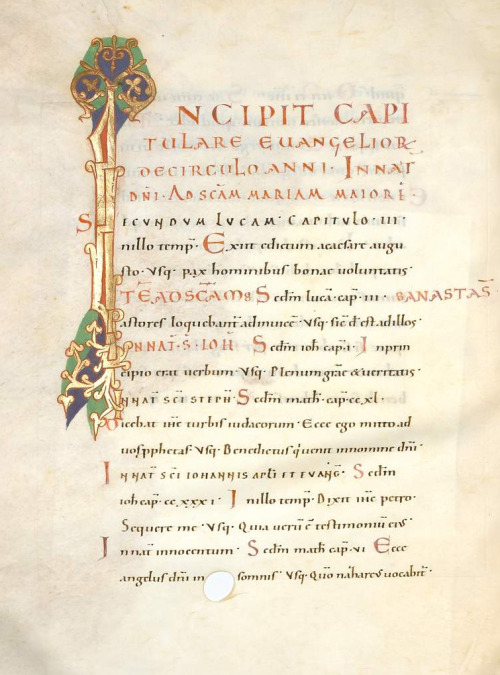 INCIPIT CAPI
TULARE EUANGELIOR
DECIRCULO ANNI · IN NAT
DNI · AD SCAM MARIAM MAIORE ·
SECUNDUM LUCAM · CAPITULO · III ·
In illo temp · Exiit edictum a caesare augu
sto · Usq · pax hominibus bonae uoluntatis ·
Sedm luca · cap · III · S ANASTAS
Pastores loquebant adinuice · Usq · sic dest adillos
IN NAT · S · IOH Sedm ioh cap · I · Inprin
cipio erat uerbum · Usq · Plenum grae & ueritatis ·
IN NAT SCI STEPH · Sedm math · cap · cc xl ·
Dicebat ihc turbis iudaeorum · Ecce ego mitto ad
uos pphetas · Usq · Benedictus q uenit innomine dni ·
IN NAT SCI IOHANNIS APLI ET EUANG · Sedm
ioh cap · cc xxx I · In illo temp · Dixit ihc petro ·
Sequere me · Usq · Quia ueru e testimoniu eius
In nat innocentum · Sedm math cap · VI · Ecce
angelus dni in somnis · Usq · Qm nazareus uocabit ·